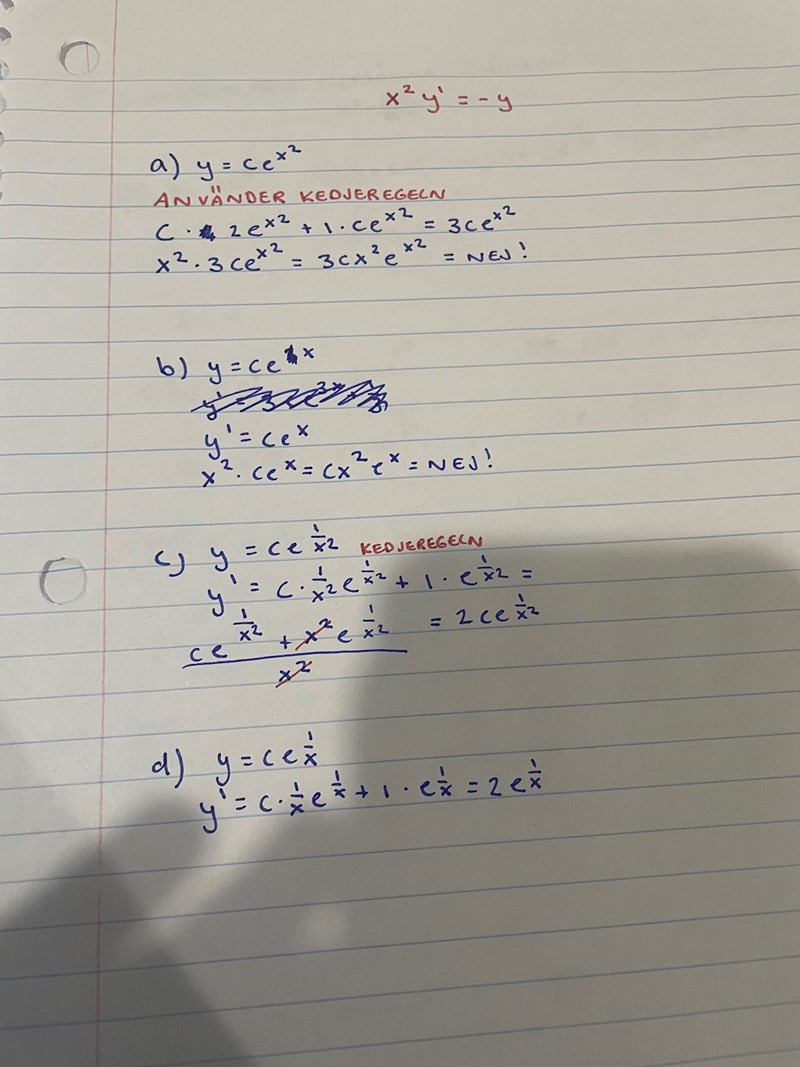 x² y' = - y
a) y = ce^{x²}
ANVÄNDER KEDJEREGELN
C · 2e^{x²} + 1 · ce^{x²} = 3ce^{x²}
x² · 3ce^{x²} = 3cx²e^{x²} = NEJ!
b) y = ce^{x}
y' = ce^{x}
x² · ce^{x} = cx²e^{x} = NEJ!
c) y = ce^{\frac{1}{x²}} KEDJEREGELN
y' = c · \frac{1}{x²} e^{\frac{1}{x²}} + 1 · e^{\frac{1}{x²}} =
\frac{ce^{\frac{1}{x²}} + x² e^{\frac{1}{x²}}}{x²} = 2ce^{\frac{1}{x²}}
d) y = ce^{\frac{1}{x}}
y' = c · \frac{1}{x} e^{\frac{1}{x}} + 1 · e^{\frac{1}{x}} = 2e^{\frac{1}{x}}